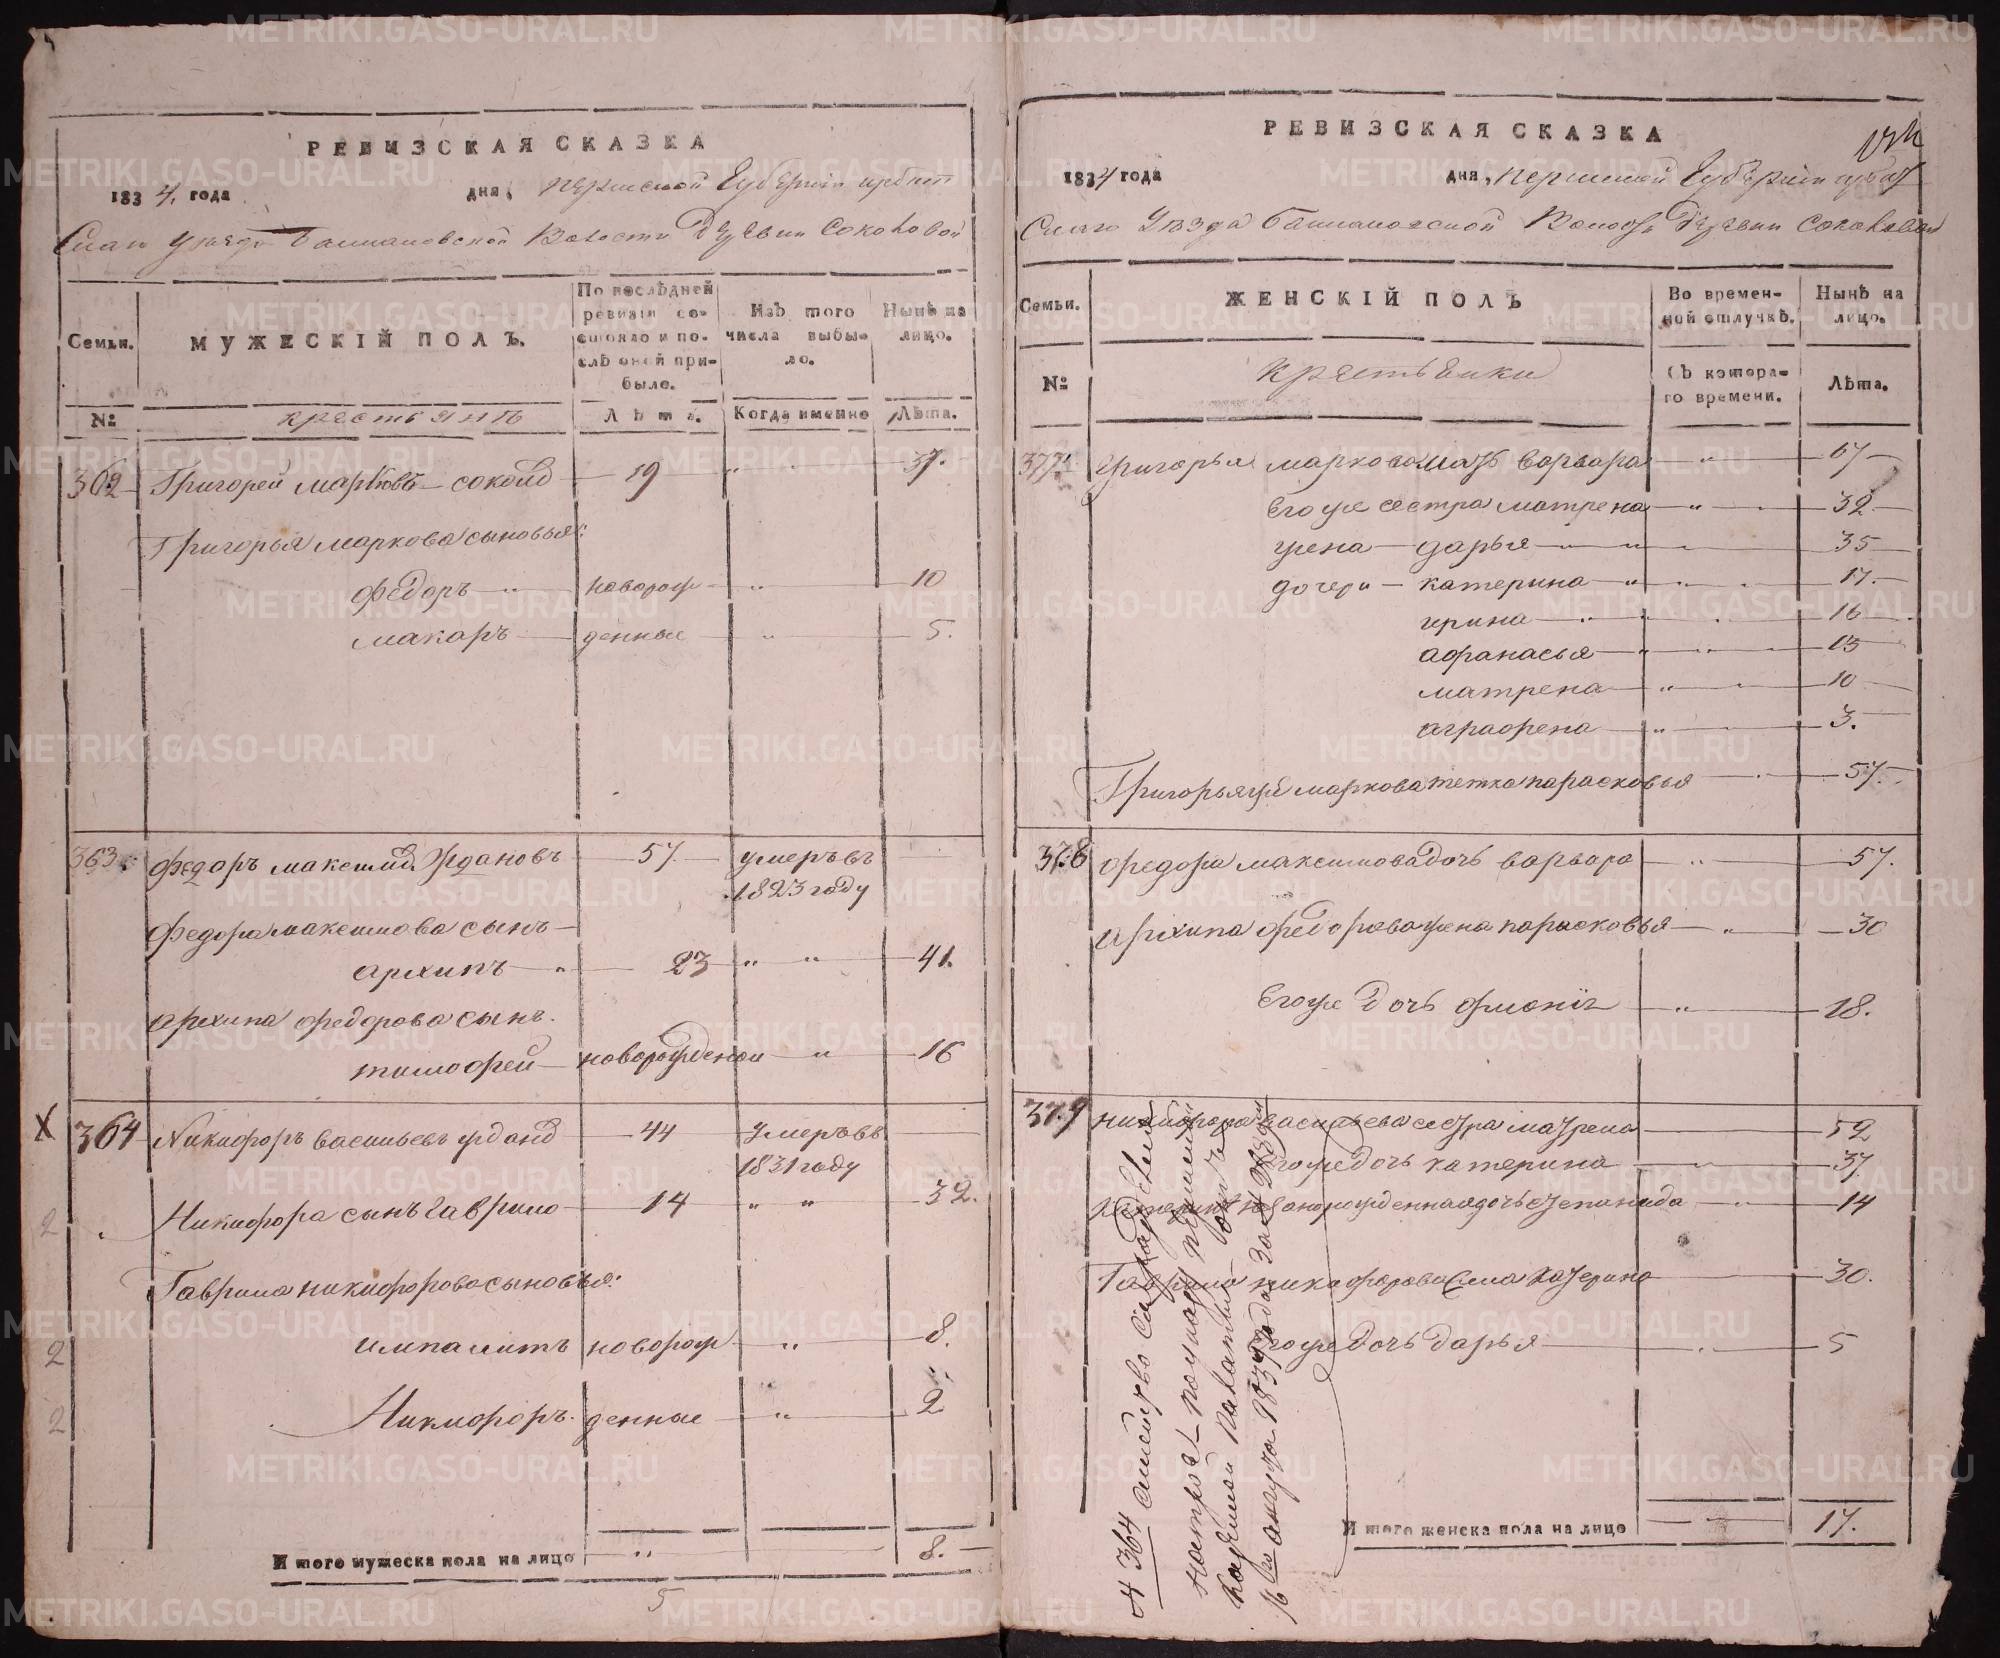 РЕВИЗСКАЯ СКАЗКА
1834 года дня, пермской Губернии ирбит
Скаго уезда Башмаковской Волости Деревни Соколовой
Семьи.
МУЖЕСКІЙ ПОЛЪ.
По послѣдней ревизіи состояло и послѣ оной прибыло.
Изъ того числа выбыло.
Нынѣ на лицо.
№
крестьянъ
Лѣта.
Когда именно
Лѣта.
362 Григорей марковъ соколовъ 19 " 37.
Григорья маркова сыновья:
федоръ " новорож " 10
макаръ денные " 5.
363 федоръ максимовъ Ждановъ 57 умеръ въ
1823 году
федора максимова сынъ
архипъ " 23 " " 41.
архипа федорова сынъ.
тимофей новорожденой " 16
х 364 Никифоръ васильевъ ждановъ 44 умеръ въ
1831 году
2 Никифора сынъ гаврило 14 " " 32.
Гаврила никифорова сыновья:
2 ипалитъ новорож " 8.
2 Никифоръ. денные " 2
Итого мужеска пола на лицо " 8.
5
РЕВИЗСКАЯ СКАЗКА
1834 года дня, пермской Губернии ирбит
Скаго Уезда Башмаковской Волости Деревни Соколовой
Семьи.
ЖЕНСКІЙ ПОЛЪ
Во временной отлучкѣ.
Нынѣ на лицо.
№
крестьянки
Съ котораго времени.
Лѣта.
377 григорья маркова мать варвара " 67
Его же сестра матрена " 32
жена дарья " " 35
дочери катерина " " 17.
ирина " 16
афанасья " 13
матрена " 10
аграфена " 3.
Григорья же маркова тетка парасковья 57.
378 федора максимова дочь варвара " 57.
архипа федорова жена парасковья " 30
Его же дочь " 18.
379 никифора васильева сестра матрена 52
Его же дочь катерина " 37
новорожденная дочь степанида " 14
Гаврила никифорова жена катерина 30.
Его же дочь дарья " 5
Итого женска пола на лицо 17.
№ 364 семейство
Казенной палаты
16го августа 1839 года за №